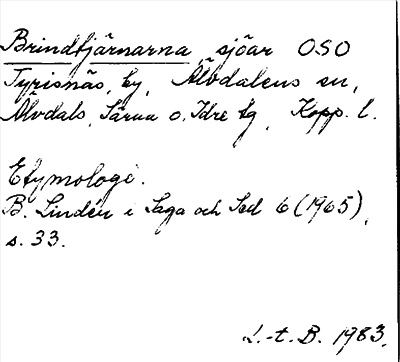 Brindtjärnarna sjöar OSO
Tyrisnäs, by, Älvdalens sn,
Älvdals, Särna o. Idre tg, Kopp. l.
Etymologi.
B. Lindén i Saga och Sed 6 (1965),
s. 33.
L.-t. B. 1983.